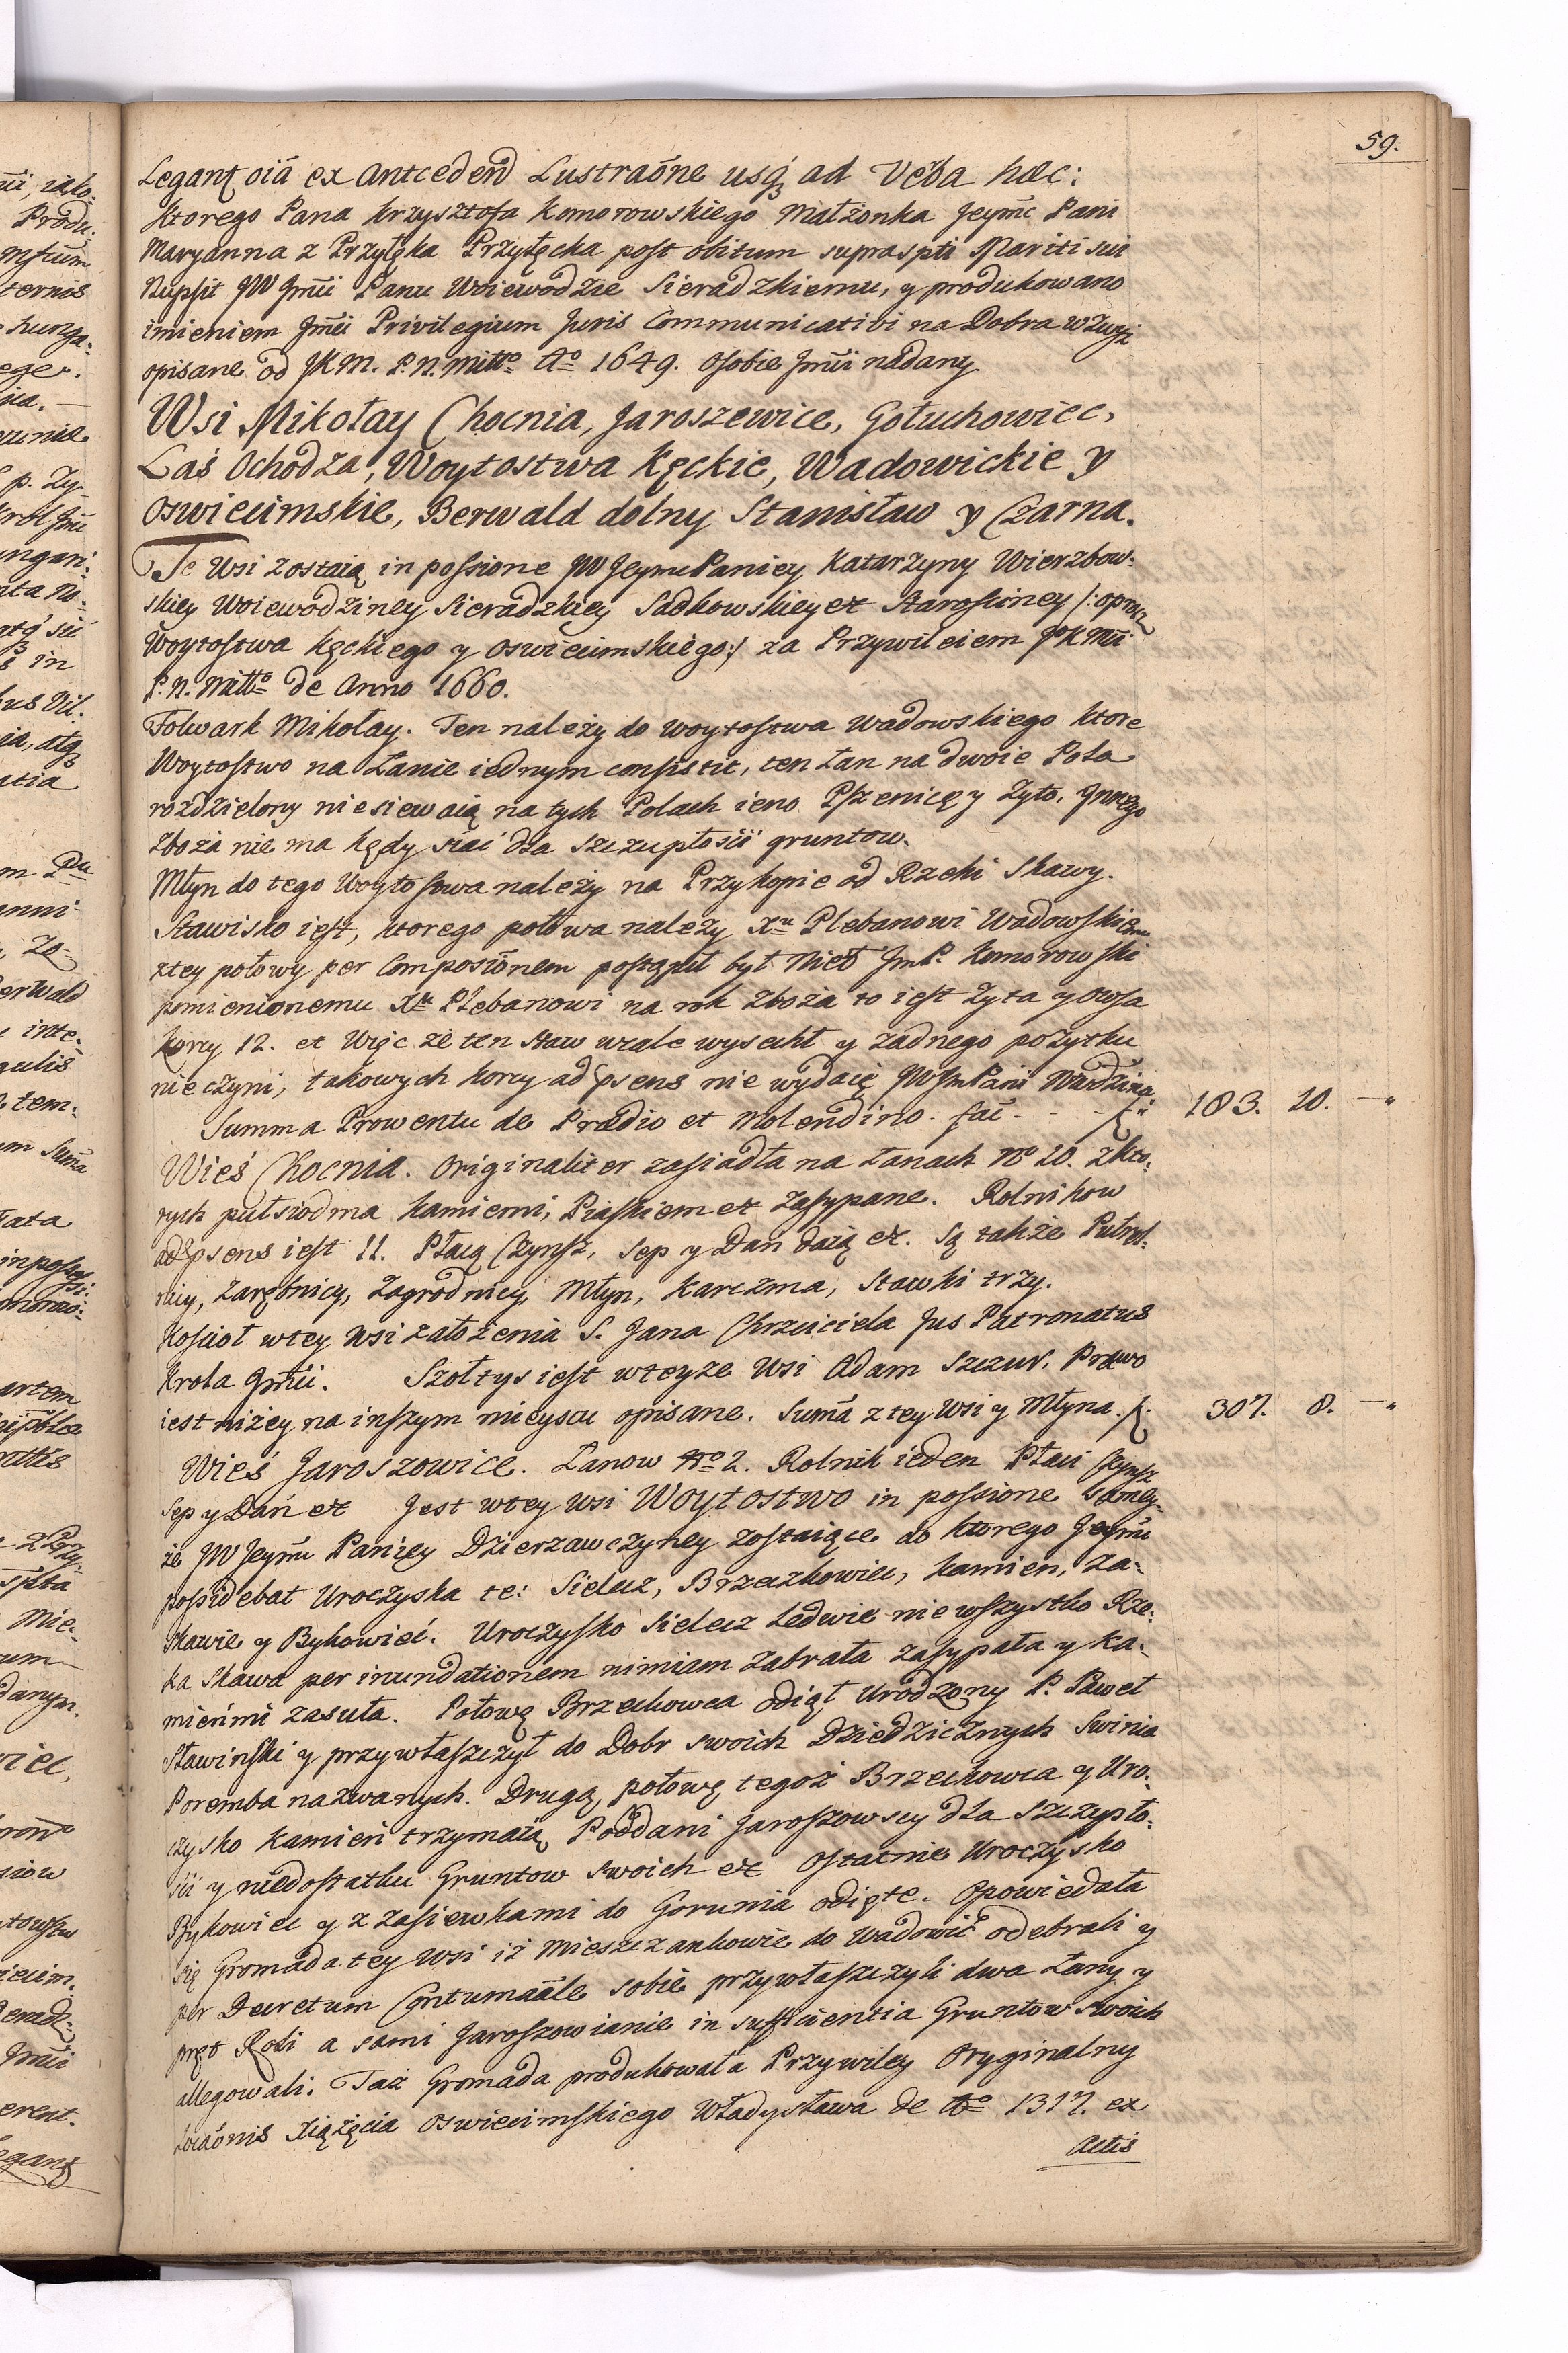 59.
Legant oiā ex Antcedeñ Lustraõne usq ad Veba hæc:
ktorego Pana Krzysztofa Komorowskiego Małżonka Jeymc Pani
Maryanna z Przyłęka Przyłęcka post obitum supraspti Mariti sui
Nupsit JW Jmći Panu Woiewodzie Sieradzkiemu, y produkowano
imieniem Jmći Privilegium Juris Communicativi na Dobra wzwyż
opisane od JKM. P. N. Mitto Ao 1649. Osobie Jmći nadany
Wsi Mikołay Chocnia, Jaroszewice, Gołuchowiec,
Laś Ochodza, Woytostwa Kęckie, Wadowickie y
Oswiecimskie, Berwald dolny Stanisław y Czarna.
Te Wsi zostaią in possione JW Jeymc Paniey Katarzyny Wierzbow:
skiey Woiewodziney Sieradzkiey Sadkowskiey et Starosciney /: oprocz
Woytostwa Kęckiego y Oswiecimskiego :/ za Przywileiem JoKMći
P. N. Mitto de Anno 1660.
Folwark Mikołay. Ten należy do Woytostwa Wadowskiego ktore
Woytostwo na Łanie iednym consistit, ten Łan na dwoie Pola
rozdzielony nie siewaią na tych Polach ieno Pszenicę y Zyto. Jnnego
zboża nie ma kędy siać dla szczupłosći gruntow.
Młyn do tego Woytostwa należy na Przykopie od Rzeki Skawy.
Stawisko iest, ktorego połowa należy Xu Plebanowi Wadowskiemu
z tey połowy per Composiõnem postąpił był Nieb Jm P. Komorowski
pomienionemu Xu Plebanowi na rok zboża to iest Zyta y Owsa
korcy 12. et Więc że ten Staw wcale wysechł y zadnego pożytku
nie czyni, takowych korcy ad psens nie wydaie JW Jm Pani Wwdzina
Summa Prowentu de Prædio et Molendino fac - - - f. 183. 10. - "
Wieś Chocnia. Originaliter zasiadła na Łanach No 20. z kto:
rych pułsiodma kamieniui, Piaskiem et zasypane. Rolnikow
ad psens iest 11. Płacą Czynsz, Sep y Dan daią et. Są także Pułrol:
nicy, Zarębnicy, Zagrodnicy, Młyn, Karczma, Stawki trzy.
Kosciół w tey wsi założenia S. Jana Chrzciciela Jus Patronatus
Krola Jmći. Szołtys iest w teyże Wsi Adam Szczur. Prawo
iest niżey na inszym mieyscu opisane. Sumā z tey Wsi y Młyna. f. 307. 8. - "
Wieś Jaroszowice. Łanow No 2. Rolnik ieden Płaci Czynsz
Sep y Dań et Jest w tey wsi Woytostwo in possione tamey:
że JW Jeymc Paniey Dzierzawczyney zostaiące do ktorego Jeymc
possidebat Uroczyska te: Sielecz, Brzeczkowiec, Kamien, Za:
skawie y Bykowiec. Uroczysko Sielecz Ledwie nie wszystko Rze:
ka Skawa per inundationem nimiam zabrała zasypała y ka:
mieńmi zasuła. Połowę Brzeckowca odiął Urodzony P. Paweł
Sławinski y przywłaszczył do Dobr swoich Dziedzicznych Swinia
Poremba nazwanych. Drugą, połowę tegoż Brzeckowca y Uro:
czysko Kamień trzymaią Poddani Jaroszowscy dla szczupło:
sci y niedostatku Gruntow swoich et Ostatnie Uroczysko
Bykowiec y z zasiewkami do Gorunia odięte. Opowiedała
się Gromada tey wsi iż Mieszczankowie do Wadowic odebrali y
per Decretum Contumaāle sobie przywłaszczyli dwa Łany y
pręt Roli a sami Jaroszowianie in sufficientia Gruntow swoich
allegowali. Taż Gromada produkowała Przywiley Oryginalny
Locaõnis Xiążęcia Oswiecimskiego Władysława de Ao 1317. ex
Actis